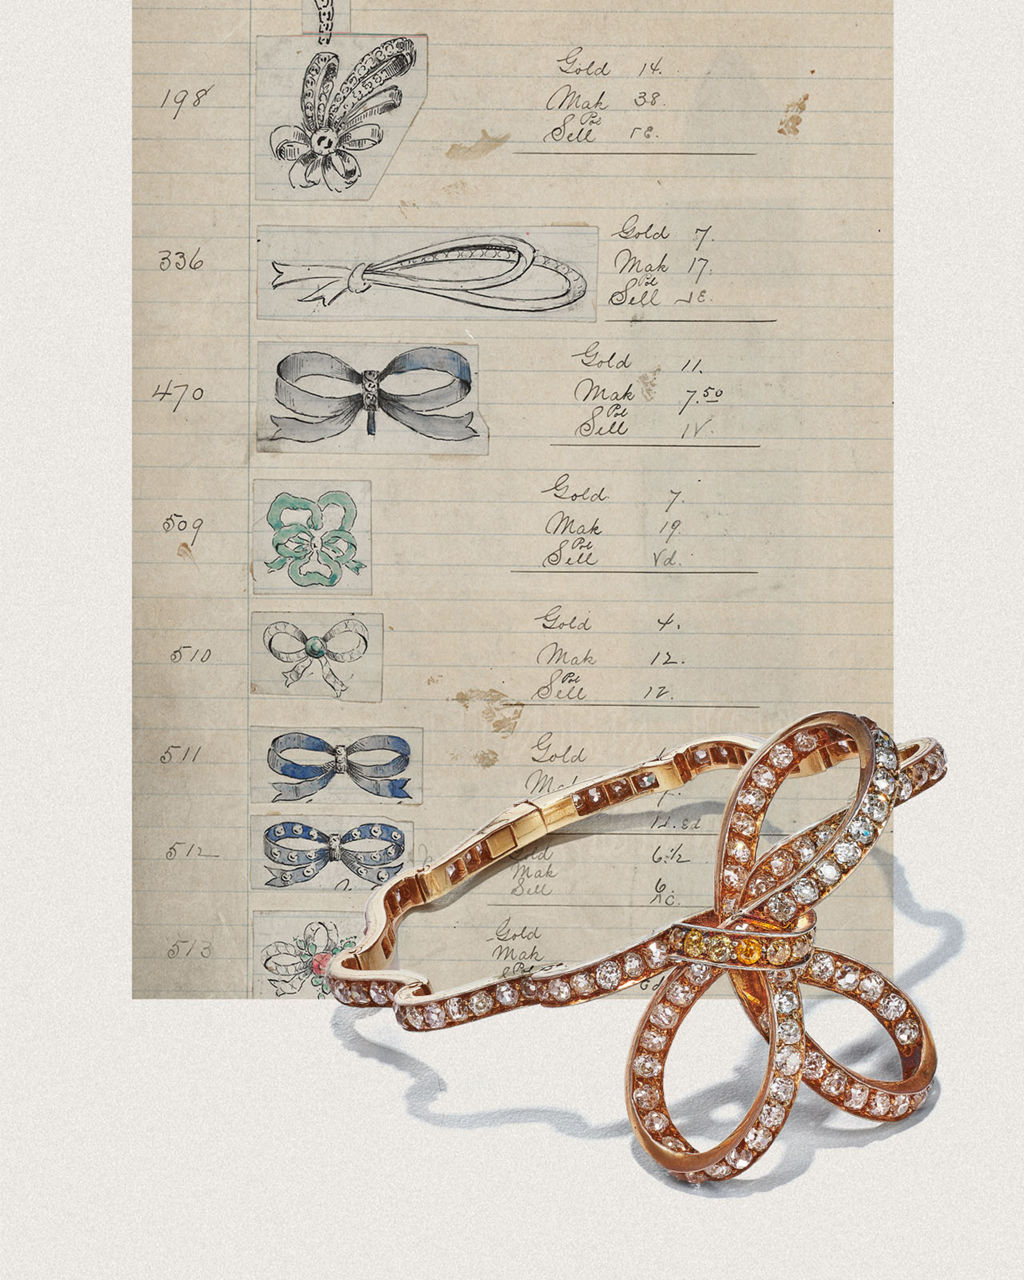 198
Gold 14.
Mak 38.
Pol
Sell
336
Gold 7.
Mak 17.
Pol
Sell
470
Gold 11.
Mak 7.50
Pol
Sell
509
Gold 7.
Mak 19.
Pol
Sell
510
Gold 4.
Mak 12.
Pol
Sell
511
Gold
512
Gold 6 1/2
Mak
Sell 6.
513
Gold
Mak